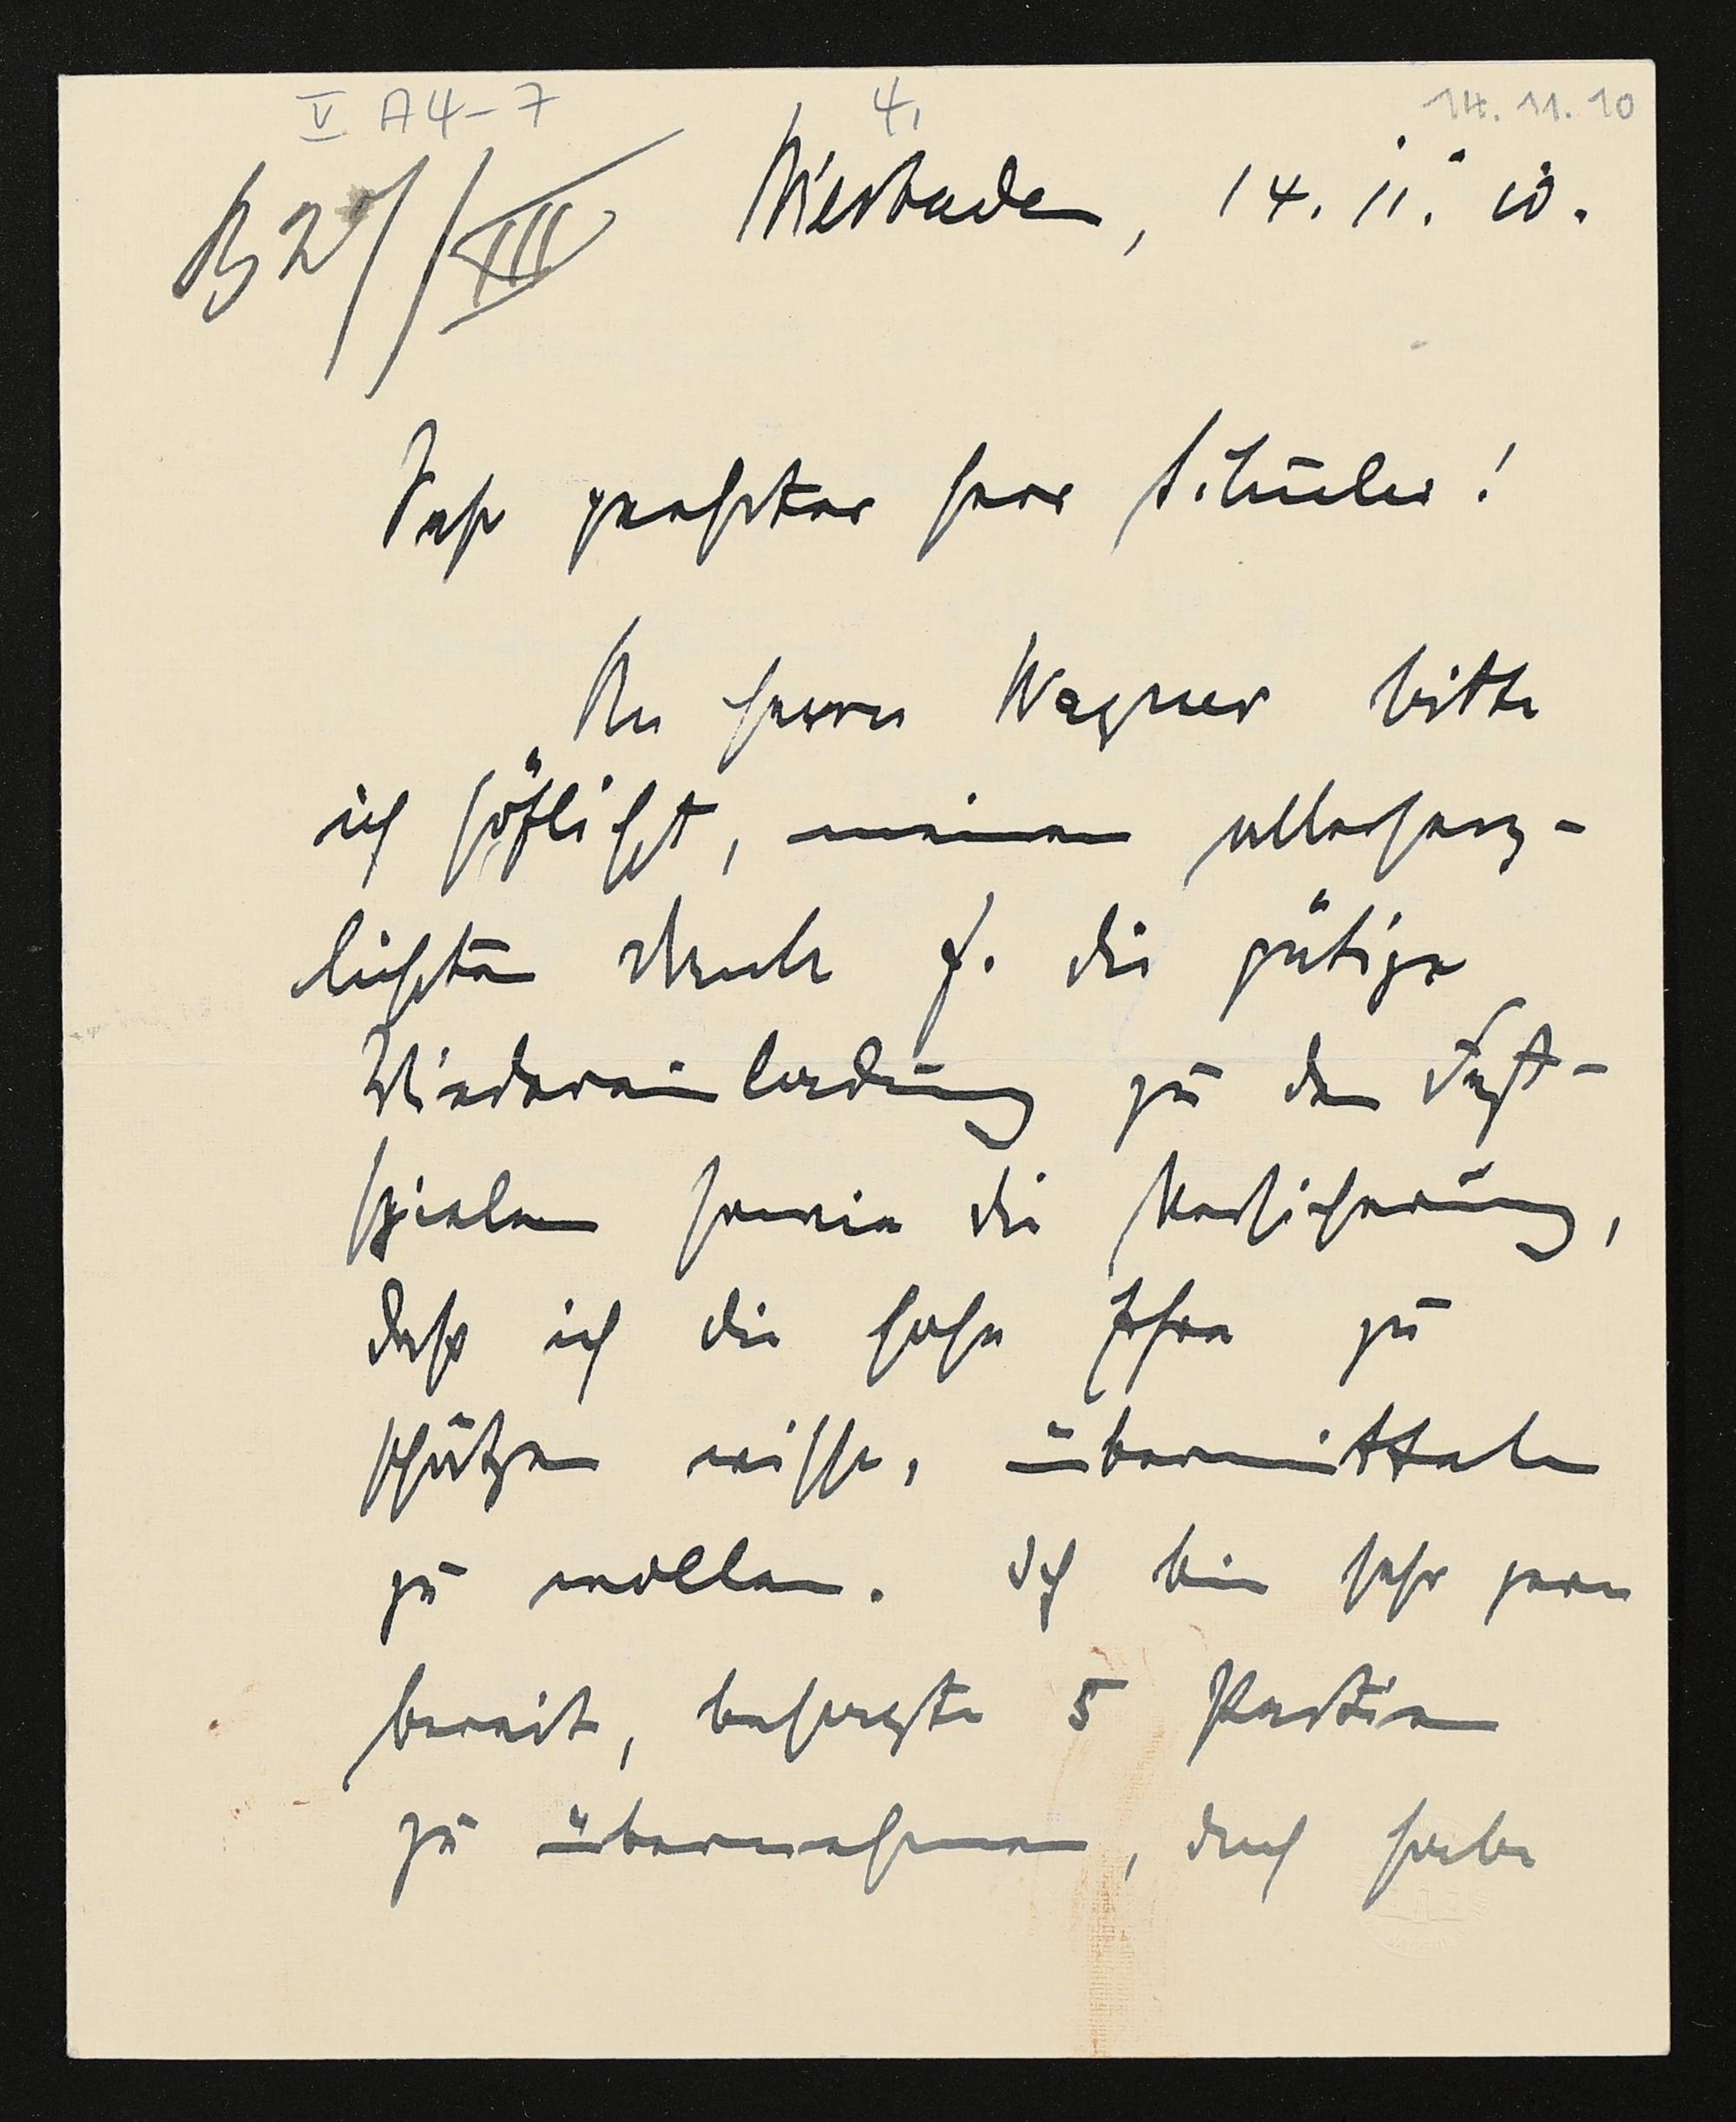 V A4-7
4.
14.11.10
B2//XIII
Wiesbaden, 14. 11. 10.
Sehr geehrter Herr Schüler!
An Herrn Wagner bitte
ich höflichst, meinen allerherz-
lichsten Dank f. die gütige
Wiedereinladung zu den Fest-
spielen sowie die Versicherung,
dass ich die hohe Ehre zu
schätzen wisse, übermitteln
zu wollen. Ich bin sehr gern
bereit, besagte 5 Partien
zu übernehmen, doch habe